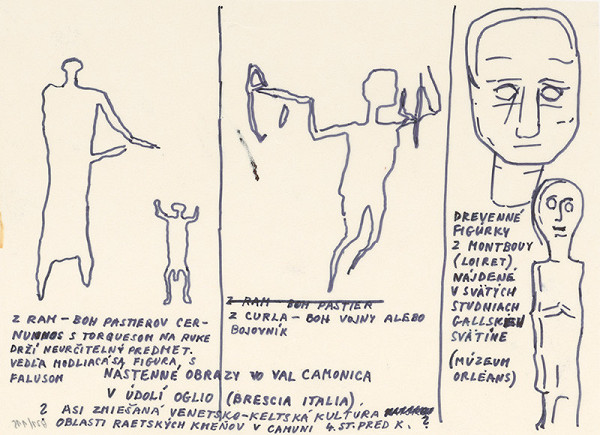 Z RAM – BOH PASTIEROV CER-
NUNNOS S TORQUESOM NA RUKE
DRŽÍ NEURČITEĽNÝ PREDMET.
VEDĽA MODLIACA SA FIGURA, S
FALUSOM
Z RAM BOH PASTIER
Z CURLA – BOH VOJNY ALEBO
BOJOVNÍK
DREVENNÉ
FIGÚRKY
Z MONTBOUY
(LOIRET)
NÁJDENÉ
V SVÄTÝCH
STUDNIACH
GALLSKEJ
SVÄTINE
(MÚZEUM
ORLÉANS)
NÁSTENNÉ OBRAZY VO VAL CAMONICA
V ÚDOLÍ OGLIO (BRESCIA ITALIA),
? ASI ZMIEŠANÁ VENETSKO-KELTSKÁ KULTURA ?
OBLASTI RAETSKÝCH KMEŇOV V CAMUNI 4. ST. PRED K.